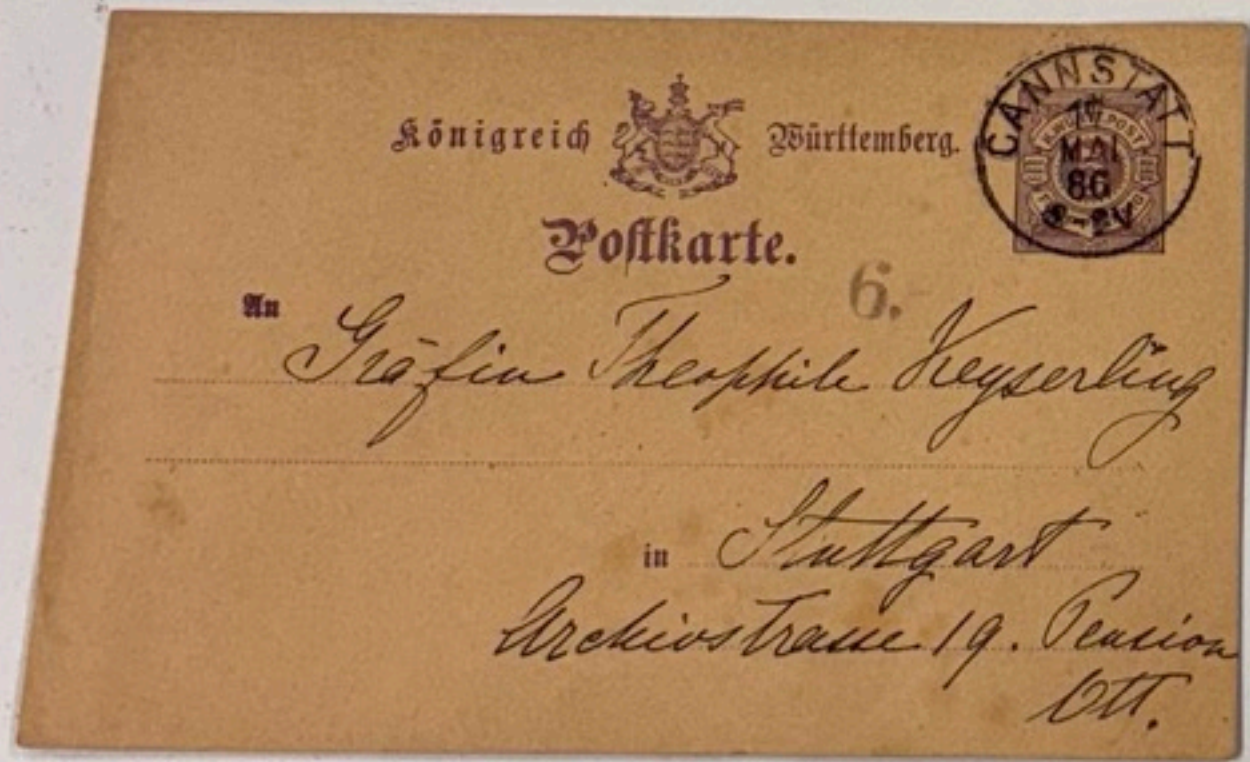 Königreich Württemberg.
CANNSTATT
MAI
86
Postkarte.
6.-
An Gräfin Theophile Keyserling
in Stuttgart
Archivstrasse 19. Pension
Ott.